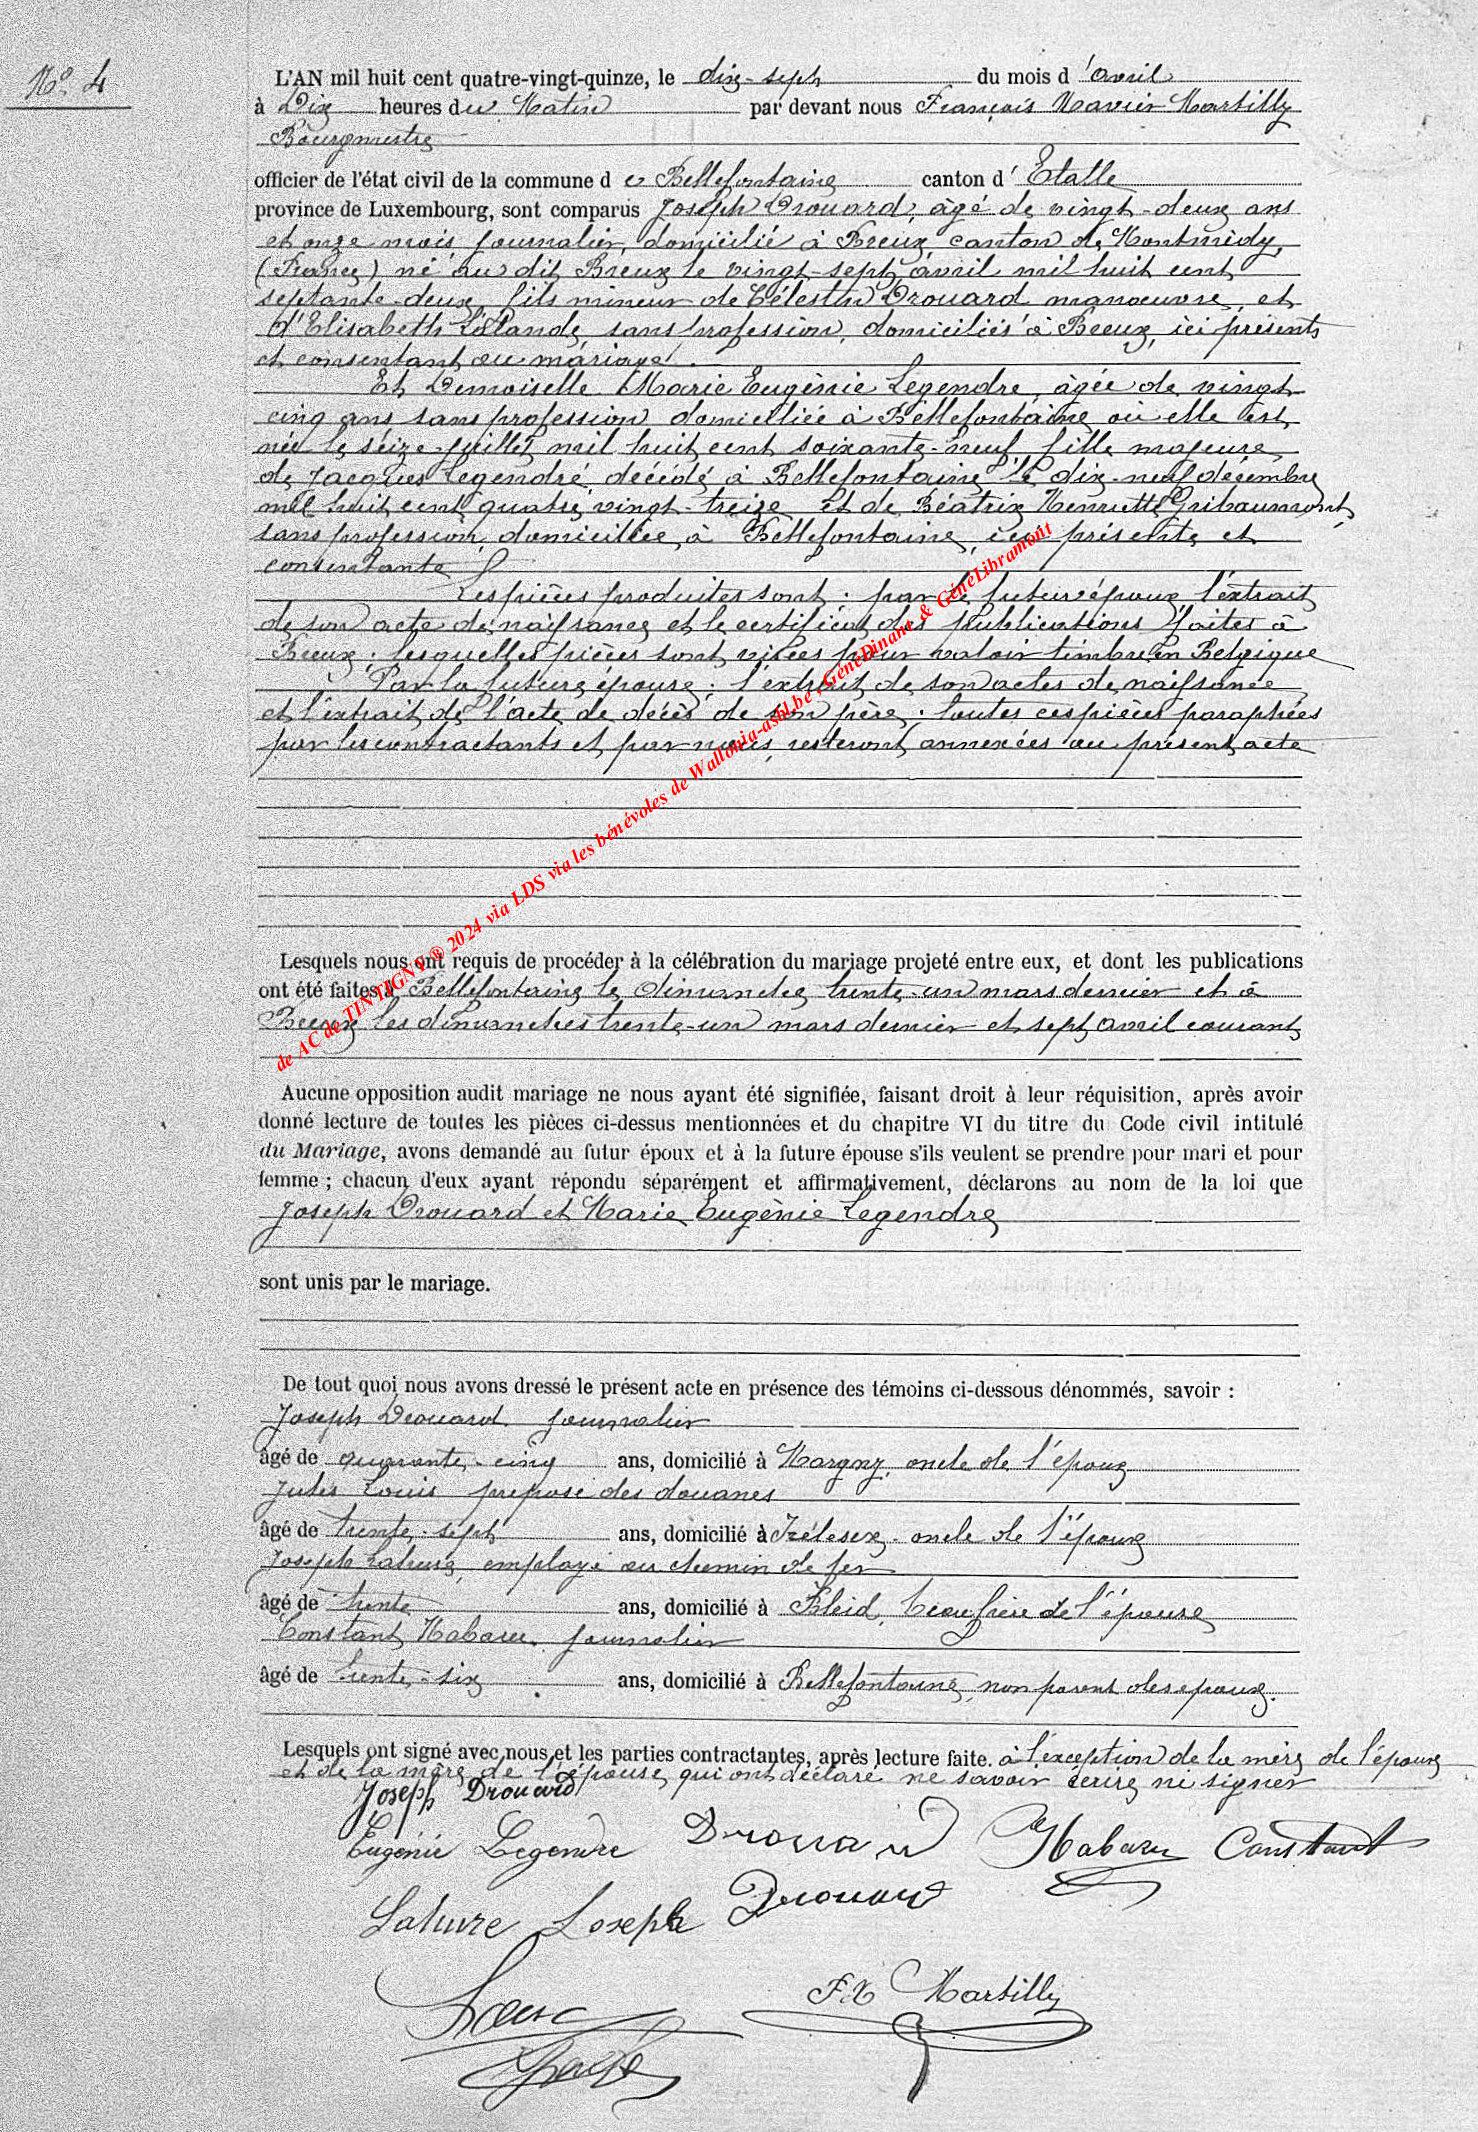 N° 4
L'AN mil huit cent quatre-vingt-quinze, le dix-sept du mois d'avril
à Dix heures du Matin par devant nous François Xavier Martilly
Bourgmestre
officier de l'état civil de la commune de Bellefontaine canton d'Etalle
province de Luxembourg, sont comparus Joseph Drouard, âgé de vingt-deux ans
et onze mois journalier, domicilié à Breux canton de Montmédy,
(France) né au dit Breux le vingt-sept avril mil huit cent
septante-deux, fils mineur de Célestin Drouard manœuvre, et
d'Elisabeth Lalande, sans profession, domiciliés à Breux, ici présents
et consentant au mariage.
Et Demoiselle Marie Eugènie Legendre, âgée de vingt
cinq ans sans profession domiciliée à Bellefontaine où elle est
née le seize juillet mil huit cent soixante-neuf fille majeure
de Jacques Legendre décédé à Bellefontaine le dix-neuf décembre
mil huit cent quatre vingt-treize et de Béatrix Henriette Gribaumont,
sans profession domiciliée à Bellefontaine, ici présente et
consentante
Les pièces produites sont : par le futur époux l'extrait
de son acte de naissance et le certificat des publications faites à
Breux ; lesquelles pièces sont visées pour valoir timbre en Belgique
Par la future épouse : l'extrait de son actes de naissance
et l'extrait de l'acte de décès de son père ; toutes ces pièces paraphées
par les contractants et par nous, resteront annexées au présent acte
Lesquels nous ont requis de procéder à la célébration du mariage projeté entre eux, et dont les publications
ont été faites à Bellefontaine le dimanche trente-un mars dernier et à
Breux les dimanches trente-un mars dernier et sept avril courant
Aucune opposition audit mariage ne nous ayant été signifiée, faisant droit à leur réquisition, après avoir
donné lecture de toutes les pièces ci-dessus mentionnées et du chapitre VI du titre du Code civil intitulé
du Mariage, avons demandé au futur époux et à la future épouse s'ils veulent se prendre pour mari et pour
femme ; chacun d'eux ayant répondu séparément et affirmativement, déclarons au nom de la loi que
Joseph Drouard et Marie Eugènie Legendre
sont unis par le mariage.
De tout quoi nous avons dressé le présent acte en présence des témoins ci-dessous dénommés, savoir :
Joseph Drouard journalier
âgé de quarante-cinq ans, domicilié à Margny, oncle de l'époux
Jules Louis préposé des douanes
âgé de trente-sept ans, domicilié à oncle de l'époux
Joseph Lahure, employé au chemin de fer
âgé de trente ans, domicilié à Bleid, beau frère de l'épouse
Constant Habaru journalier
âgé de trente-six ans, domicilié à Bellefontaine, non parent des époux.
Lesquels ont signé avec nous et les parties contractantes, après lecture faite. à l'exception de la mère de l'époux
et de la mère de l'épouse, qui ont déclaré ne savoir écrire ni signer
Joseph Drouard
Eugénie Legendre Drouard Habaru Constant
Lahure Joseph Drouard
F.X Martilly
de AC de TINTIGNY ® 2024 via LDS via les bénévoles de Wallonia-asbl.be , GénéDinant & GénéLibramont